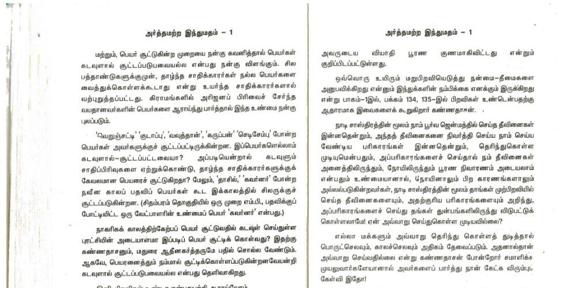 அர்த்தமற்ற இந்துமதம் – 1
மற்றும், பெயர் சூட்டுகின்ற முறையை நன்கு கவனித்தால் பெயர்கள்
கடவுளால் சூட்டப்படுபவையல்ல என்பது நன்கு விளங்கும். சில
பத்தாண்டுகளுக்குமுன், தாழ்ந்த சாதிக்காரர்கள் நல்ல பெயர்களை
வைத்துக்கொள்ளக்கூடாது என்று உயர்ந்த சாதிக்காரர்களால்
வற்புறுத்தப்பட்டது. கிராமங்களில் அரிஜனப் பிரிவைச் சேர்ந்த
வயதானவர்களின் பெயர்களை ஆராய்ந்து பார்த்தால் இந்த உண்மை நன்கு
புலப்படும்.
போன்ற
பெயர்கள் அவர்களுக்குச் சூட்டப்பட்டிருக்கின்றன. இப்பெயர்களெல்லாம்
கடவுளால் சூட்டப்பட்டவையா? அப்படியென்றால் கடவுளும்
சாதிப்பிரிவுகளை ஏற்றுக்கொண்டு, தாழ்ந்த சாதிக்காரர்களுக்குக்
கேவலமான பெயரைச் சூட்டுகிறாரா? மேலும், 'தாசில்,' 'கவர்னர்' போன்ற
நவீன காலப் பதவிப் பெயர்கள் கூட இக்காலத்தில் சிலருக்குச்
சூட்டப்படுகின்றன. (சிதம்பரம் தொகுதியில் ஒரு முறை எம்பி, பதவிக்குப்
போட்டியிட்ட ஒரு வேட்பாளரின் உண்மைப் பெயர் 'கவர்னர்' என்பது.)
நாகரிகக் காலத்திற்கேற்பப் பெயர் சூட்டுவதில் கடவுள் செய்துள்ள
புரட்சியின் அடையாளமா இப்படிப் பெயர் சூட்டிக் கொள்வது? இதற்கு
கண்ணதாசனும், மதுரை ஆதீனகர்த்தருமே பதில் சொல்ல வேண்டும்.
ஆகவே, பெயரனைத்தும் நம்மால் சூட்டிக்கொள்ளப்படுகின்றனவேயன்றி
கடவுளால் சூட்டப்படுபவையல்ல என்பது தெளிவாகிறது.
அர்த்தமற்ற இந்துமதம் – 1
அவருடைய வியாதி பூரண குணமாகிவிட்டது என்றும்
குறிப்பிட்டுள்ளார்.
ஒவ்வொரு உயிரும் மறுபிறவியெடுத்து நன்மை-தீமைகளை
அனுபவிக்கிறது என்னும் இந்துக்களின் நம்பிக்கை எனக்கும் இருக்கிறது
என்று பாகம்-1இல், பக்கம் 134, 135-இல் பிறவிகள் உண்டென்பதற்கு
ஆதாரமாக இவைகளைக் கூறுகிறார் கண்ணதாசன்.
நாடி சாஸ்திரத்தின் மூலம் நாம் பூர்வ ஜென்மத்தில் செய்த தீவினைகள்
இன்னதென்றும், அந்தத் தீவினைகளை நிவர்த்தி செய்ய நாம் செய்ய
வேண்டிய பரிகாரங்கள் இன்னதென்றும், தெரிந்துகொள்ள
முடியுமென்பதும், அப்பரிகாரங்களைச் செய்தால் நம் தீவினைகள்
அனைத்திலிருந்தும், நோயிலிருந்தும் பூரண நிவாரணம் அடையலாம்
என்பதும் உண்மையானால், நோயினாலும் பிற காரணங்களாலும்
அல்லல்படுகின்றவர்கள், நாடி சாஸ்திரத்தின் மூலம் தாங்கள் முற்பிறவியில்
செய்த தீவினைகளையும், அதற்குரிய பரிகாரங்களையும் அறிந்து,
அப்பரிகாரங்களைச் செய்து தங்கள் துன்பங்களிலிருந்து விடுபட்டுக்
கொள்ளலாமே! ஏன் அவ்வாறு செய்துகொள்ள முடிவதில்லை?
எல்லா மக்களும் அவ்வாறு தெரிந்து கொள்ளத் துடித்தால்
பொருட்செலவும், காலச்செலவும் அதிகம் தேவைப்படும். அதனால்தான்
அவ்வாறு செய்வதில்லை என்று கண்ணதாசன் போன்றோர் சமாளிக்க
முயலுவார்களேயானால் அவர்களைப் பார்த்து நான் கேட்க விரும்பு
கேள்வி இதோ!